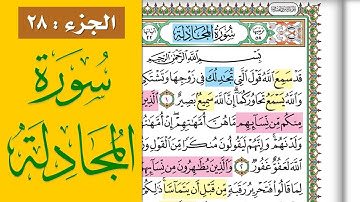 الجزء : ٢٨
سُورَة
المُجَادِلَة
سُورَةُ المُجَادِلَةِ
بِسْمِ اللَّهِ الرَّحْمَٰنِ الرَّحِيمِ
قَدْ سَمِعَ اللَّهُ قَوْلَ الَّتِي تُجَادِلُكَ فِي زَوْجِهَا وَتَشْتَكِي
وَاللَّهُ يَسْمَعُ تَحَاوُرَكُمَا إِنَّ اللَّهَ سَمِيعٌ بَصِيرٌ ١ الَّذِينَ
مِنكُم مِّن نِّسَائِهِم مَّا هُنَّ أُمَّهَاتِهِمْ إِنْ أُمَّهَاتُهُمْ
وَلَدْنَهُمْ وَإِنَّهُمْ لَيَقُولُونَ مُنكَرًا مِّنَ الْقَوْلِ
اللَّهَ لَعَفُوٌّ غَفُورٌ ٢ وَالَّذِينَ يُظَاهِرُونَ مِن نِّسَائِهِمْ
لِمَا قَالُوا فَتَحْرِيرُ رَقَبَةٍ مِّن قَبْلِ أَن يَتَمَاسَّا